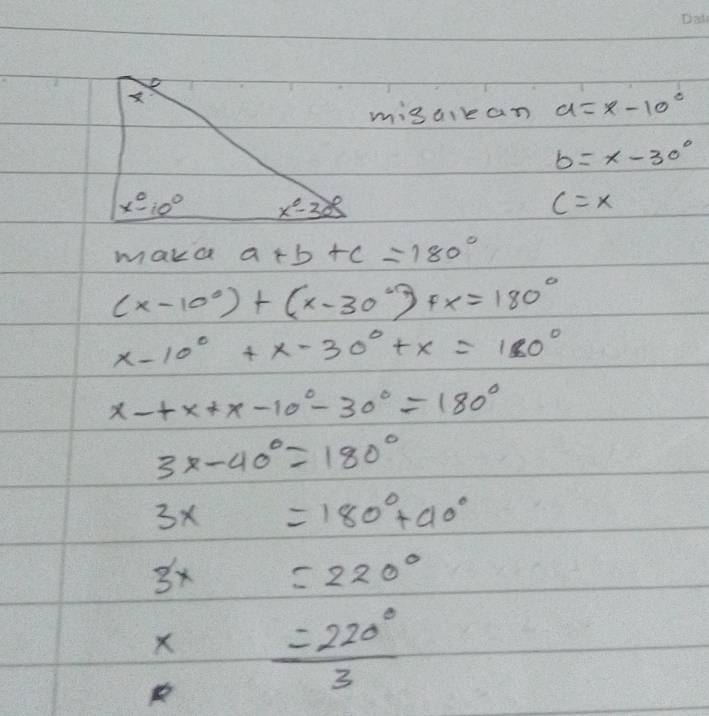 Dat
x°
misalkan a = x - 10°
b = x - 30°
x° - 10° x° - 30°
c = x
maka a + b + c = 180°
(x - 10°) + (x - 30°) + x = 180°
x - 10° + x - 30° + x = 180°
x - + x + x - 10° - 30° = 180°
3x - 40° = 180°
3x = 180° + 40°
3x = 220°
x = 220°
3